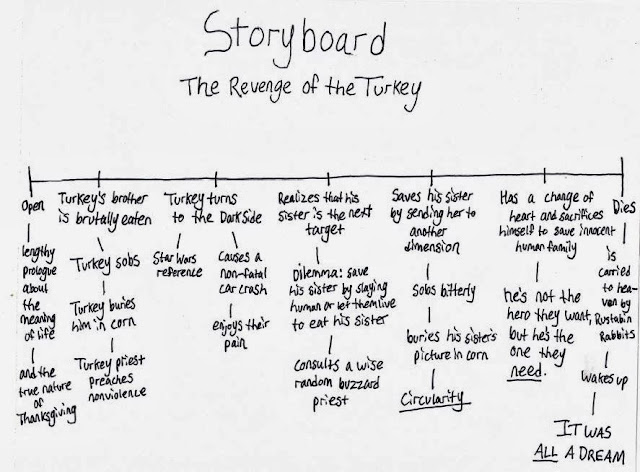 Storyboard
The Revenge of the Turkey
Open
lengthy
prologue
about
the
meaning
of life
and the
true nature
of
Thanksgiving
Turkey's brother
is brutally eaten
Turkey sobs
Turkey buries
him in corn
Turkey priest
preaches
nonviolence
Turkey turns
to the Dark Side
Star Wars
reference
Causes a
non-fatal
car crash
enjoys their
pain
Realizes that his
sister is the next
target
Dilemma: save
his sister by slaying
human or let them live
to eat his sister
Consults a wise
random buzzard
priest
Saves his sister
by sending her to
another
dimension
Sobs bitterly
buries his sister's
picture in corn
Circularity
Has a change of
heart and sacrifices
himself to save innocent
human family
he's not the
hero they want,
but he's the
one they
need.
Dies
is
carried
to hea-
ven by
Rabbits
Wakes up
IT WAS
ALL A DREAM